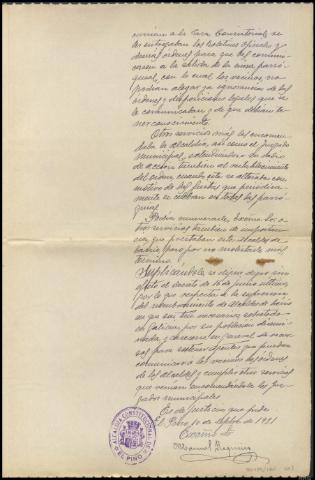 currian a la Casa Consistorial se
les entregaban los boletines oficiales y
demas ordenes para que las comuni-
casen a la salida de la misa parro-
quial, con lo cual los vecinos no
podian alegar ya ignorancia de las
ordenes y disposiciones legales que se
le comunicaban y de que debian te-
ner conocimiento.
Otros servicios más les encomen-
daba la alcaldía, asi como el Juzgado
municipal, extendiendose su radio
de accion tambien al restablecimiento
del orden, cuando este se alteraba con
motivo de las fiestas que periodica-
mente se celebran en todas las parro-
quias.
Podria enumerarle, Excmo. Sr. o-
tros servicios tambien de importan-
cia que prestaban estos Alcaldes de
barrio, pero por no molestarle mas
termino
Suplicandole se digne dejar sin
efecto el decreto de 16 de Junio ultimo
por lo que respecta a la supresion
del nombramiento de Alcaldes de barrio
que son tan necesarios sobre todo
en Galicia por su poblacion disemi-
nada, y carecerse en general de recur-
sos para sostener agentes que puedan
comunicar a los vecinos las ordenes
de los Alcaldes y cumplir otros servicios
que venian encomendandole los juz-
gados municipales
Es de justicia que pide.
El Pino, 10 de Septbre de 1931
Excmo. Sr.
Manuel
ALCALDIA CONSTITUCIONAL DE
EL PINO